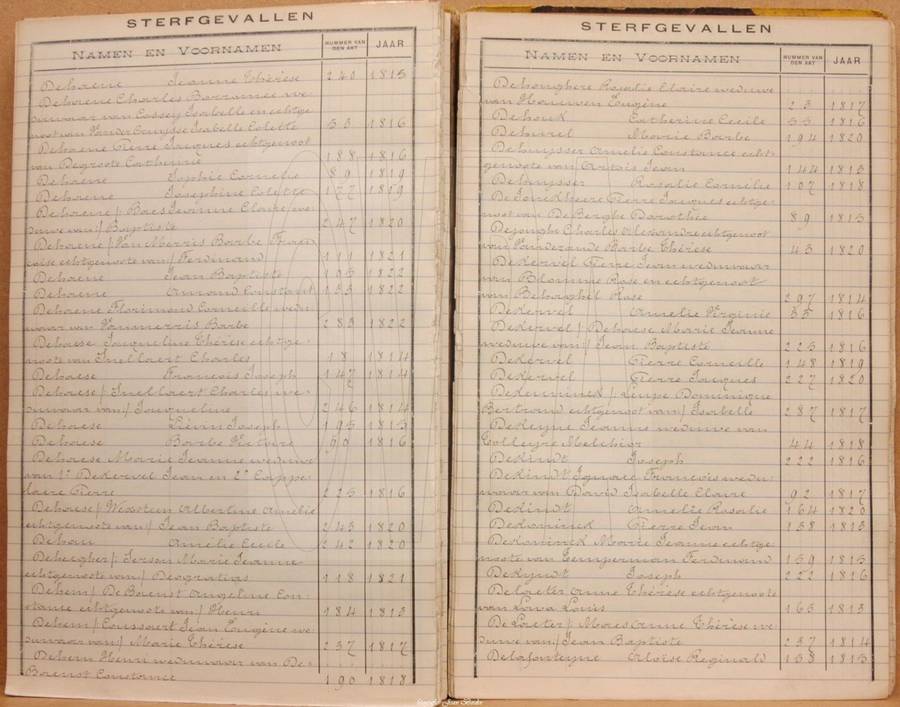 STERFGEVALLEN
NAMEN EN VOORNAMEN NUMMER VAN DEN AKT JAAR
Dehaene Jeanne Thérèse 240 1815
Dehaene Charles Borromée we-
duwaar van Cossey Isabelle en echtge
noot van Vander Cruysse Isabelle Colette 53 1816
Dehaene Pierre Jacques echtgenoot
van Degroote Catherine 188 1816
Dehaene Sophie Cornelie 89 1819
Dehaene Josephine Colette 177 1819
Dehaene / Baes Jeanne Claire we-
duwe van / Baptiste 247 1820
Dehaene / Van Merris Barbe Fran
coise echtgenoote van / Ferdinand 111 1821
Dehaene Jean Baptiste 105 1822
Dehaene Amand Constant 133 1822
Dehaene Florimond Corneille wedu
waar van Vanmerris Barbe 283 1822
Dehaese Jacqueline Thérèse echtge
noote van Snellaert Charles 18 1814
Dehaese Francois Joseph 147 1814
Dehaese / Snellaert Charles we-
duwaar van / Jacqueline 246 1814
Dehaese Lievin Joseph 195 1815
Dehaese Barbe Victoire 50 1816
Dehaese Marie Jeanne weduwe
van 1° DeKervel Jean en 2°
laire Pierre 225 1816
Dehaese / Albertine Amélie
echtgenoote van / Jean Baptiste 245 1820
Amélie Cecile 242 1820
Debergher / Marie Jeanne
echtgenoote van / Deogratias 118 1821
Dehem / De Boeust Angeline Con-
stance echtgenoote van / Henri 184 1813
Dehem / Coussaert Jean Eugène we
duwaar van / Marie Thérèse 237 1817
Dehem Henri weduwaar van De-
Boeust Constance 190 1818
STERFGEVALLEN
NAMEN EN VOORNAMEN NUMMER VAN DEN AKT JAAR
Dehonghere Rosalie Claire weduwe
van Eugène 23 1817
Dehouk Catherine Cecile 55 1816
Dehurel Marie Barbe 194 1820
Dehuysser Amelie Constance echt-
genoote van Artois Jean 144 1813
Dehuysser Rosalie Cornelie 107 1818
Pierre Jacques echtge-
noot van DeBerghe Dorothée 89 1813
Dejongh Charles Alexandre echtgenoot
van Vanderande Barbe Thérèse 45 1820
DeKervel Pierre Jean weduwaar
van Blomme Rose en echtgenoot
van Behaeghel Rose 297 1814
DeKervel Amelie Virginie 35 1816
DeKervel / Dehaese Marie Jeanne
weduwe van / Jean Baptiste 225 1816
DeKervel Pierre Corneille 148 1819
DeKervel Pierre Jacques 227 1820
Dekeuninck / Leupe Dominique
Bertrand echtgenoot van / Isabelle 287 1817
DeKeyne Jeanne weduwe van
Colleyre Melchior 44 1818
DeKindt Joseph 222 1816
DeKindt Ignace François wedu-
waar van David Isabelle Claire 92 1817
DeKindt Amelie Rosalie 164 1820
DeKoninck Pierre Jean 138 1813
DeKoninck Marie Jeanne echtge
noote van Temperman Ferdinand 159 1815
DeKyndt Joseph 222 1816
DeLaeter Anne Thérèse echtgenoote
van Louis 165 1813
DeLaeter / Maes Anne Thérèse we
duwe van / Jean Baptiste 237 1814
Delafonteyne Aloise Reginald 158 1813